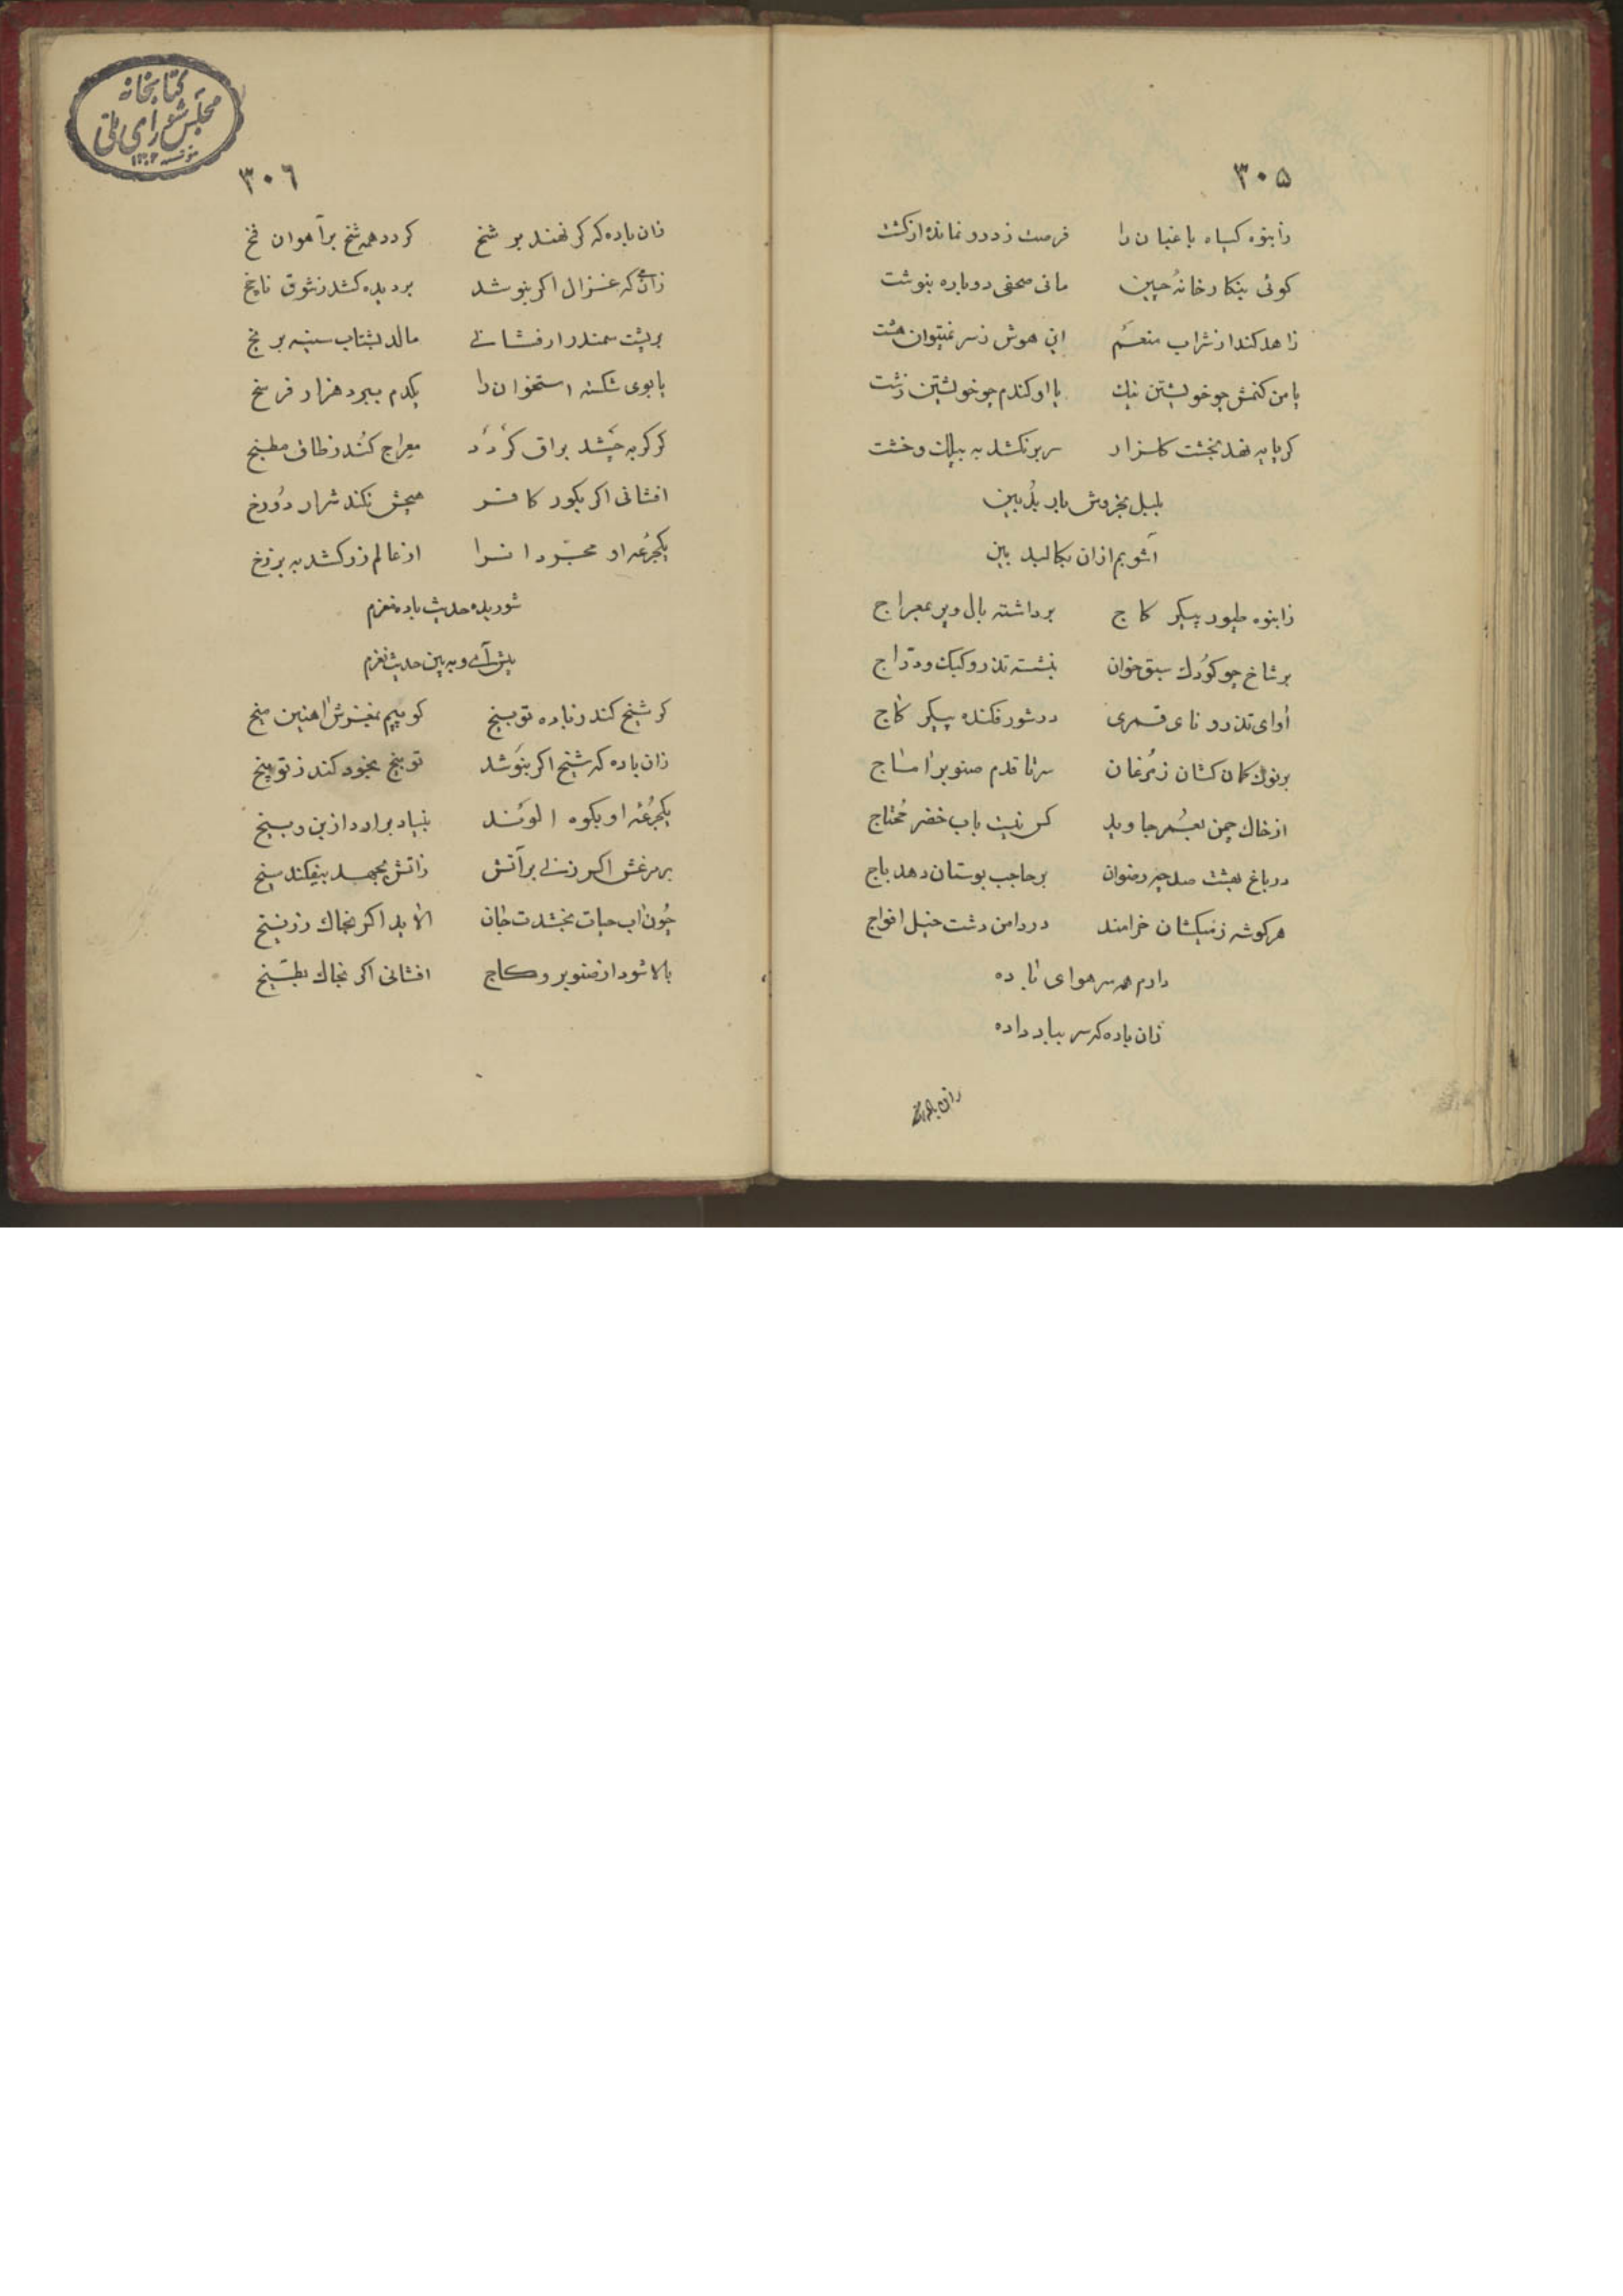 ۳۰۵
زانبوه کیاه باغبان را فرصت ز درو نمانده از کشت
کوئی بنکارخانهٔ چین مانی صحفی دوباره بنوشت
زاهد کند از شراب منعم این هوش ز سر نمیتوان هشت
با من کنمش چو خویشتن نیك یا او کندم چو خویشتن زشت
کر پایه نهد بخشت کلزار سر برنکشد به بیلك و خشت
بلبل بخروش باربد بین
آشوبم از آن بکالبد بین
زانبوه طیور پیکر کاج برداشته بال و پر بمعراج
بر شاخ چو کودك سبق خوان بنشسته تذرو و کبك و درّاج
اوای تذرو و نای قمری در شور فکنده پیکر کاج
بر نوك کمان کشان زمرغان سر تا قدم صنوبر اماج
از خاك چمن بعمر جاوید کس نیست باب خضر محتاج
در باغ بهشت صد چو رضوان بر حاجب بوستان دهد باج
هر کوشه ز نیکشان خرامند در دامن دشت خیل افواج
دارم همه سر هوای باده
زان باده که سر بباد داده
زان باده که
۳۰٦
زان باده که کر نهند بر شخ کردد همه شخ بر آهوان فخ
زان می که غزال اکر بنوشد بر دیده کشد ز شوق ناچخ
بر پشت سمندر ار فشانی مالد بشتاب سینه بر یخ
یابوی شکسته استخوان را یکدم ببرد هزار فرسخ
کر کربه چشد براق کردد معراج کند ز طاق مطبخ
افشانی اکر بکور کافر هیچش نکند شرار دوزخ
یکجرعه او مجردانرا از عالم زر کشد به برزخ
شوریده حدیث باده نغزم
پیش آی و به بین حدیث نغزم
کر شیخ کند ز باده توبیخ کوبیم بمغزش اهنین میخ
زان باده که شیخ اکر بنوشد توبیخ بخود کند ز توبیخ
یکجرعه او بکوه الوند بنیاد برارد از بن و بیخ
بر مرغش اکر زنی بر آتش زاتش بجهد بیفکند سیخ
چون اب حیات بخشدت جان الاید اکر بخاك زرنیخ
بالا شود از صنوبر و کاج افشانی اکر بخاك بطّیخ
کتابخانه
مجلس شورای ملی